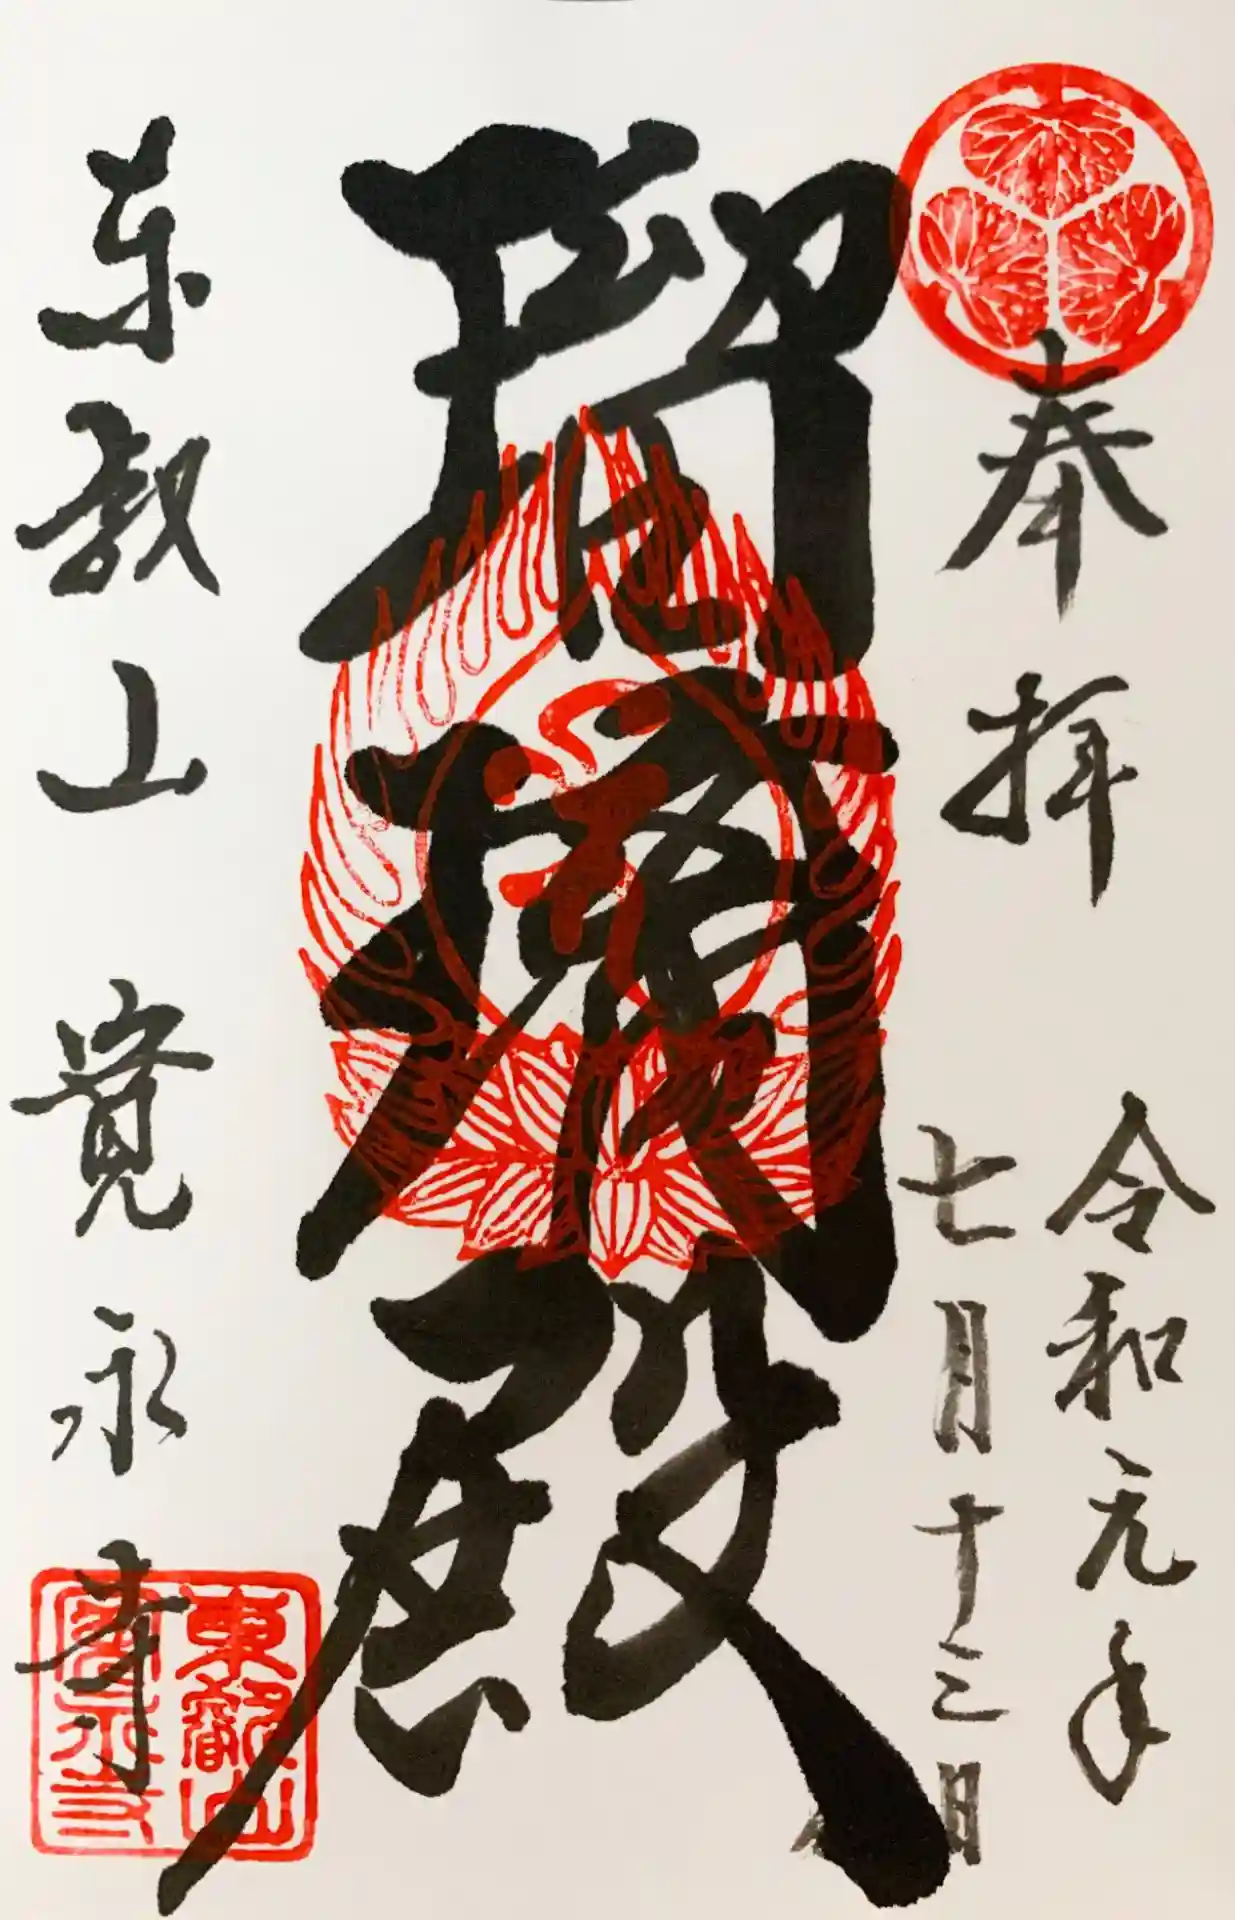 奉拝
令和元年
七月十三日
瑠璃殿
東叡山寛永寺
東叡山
寛永寺